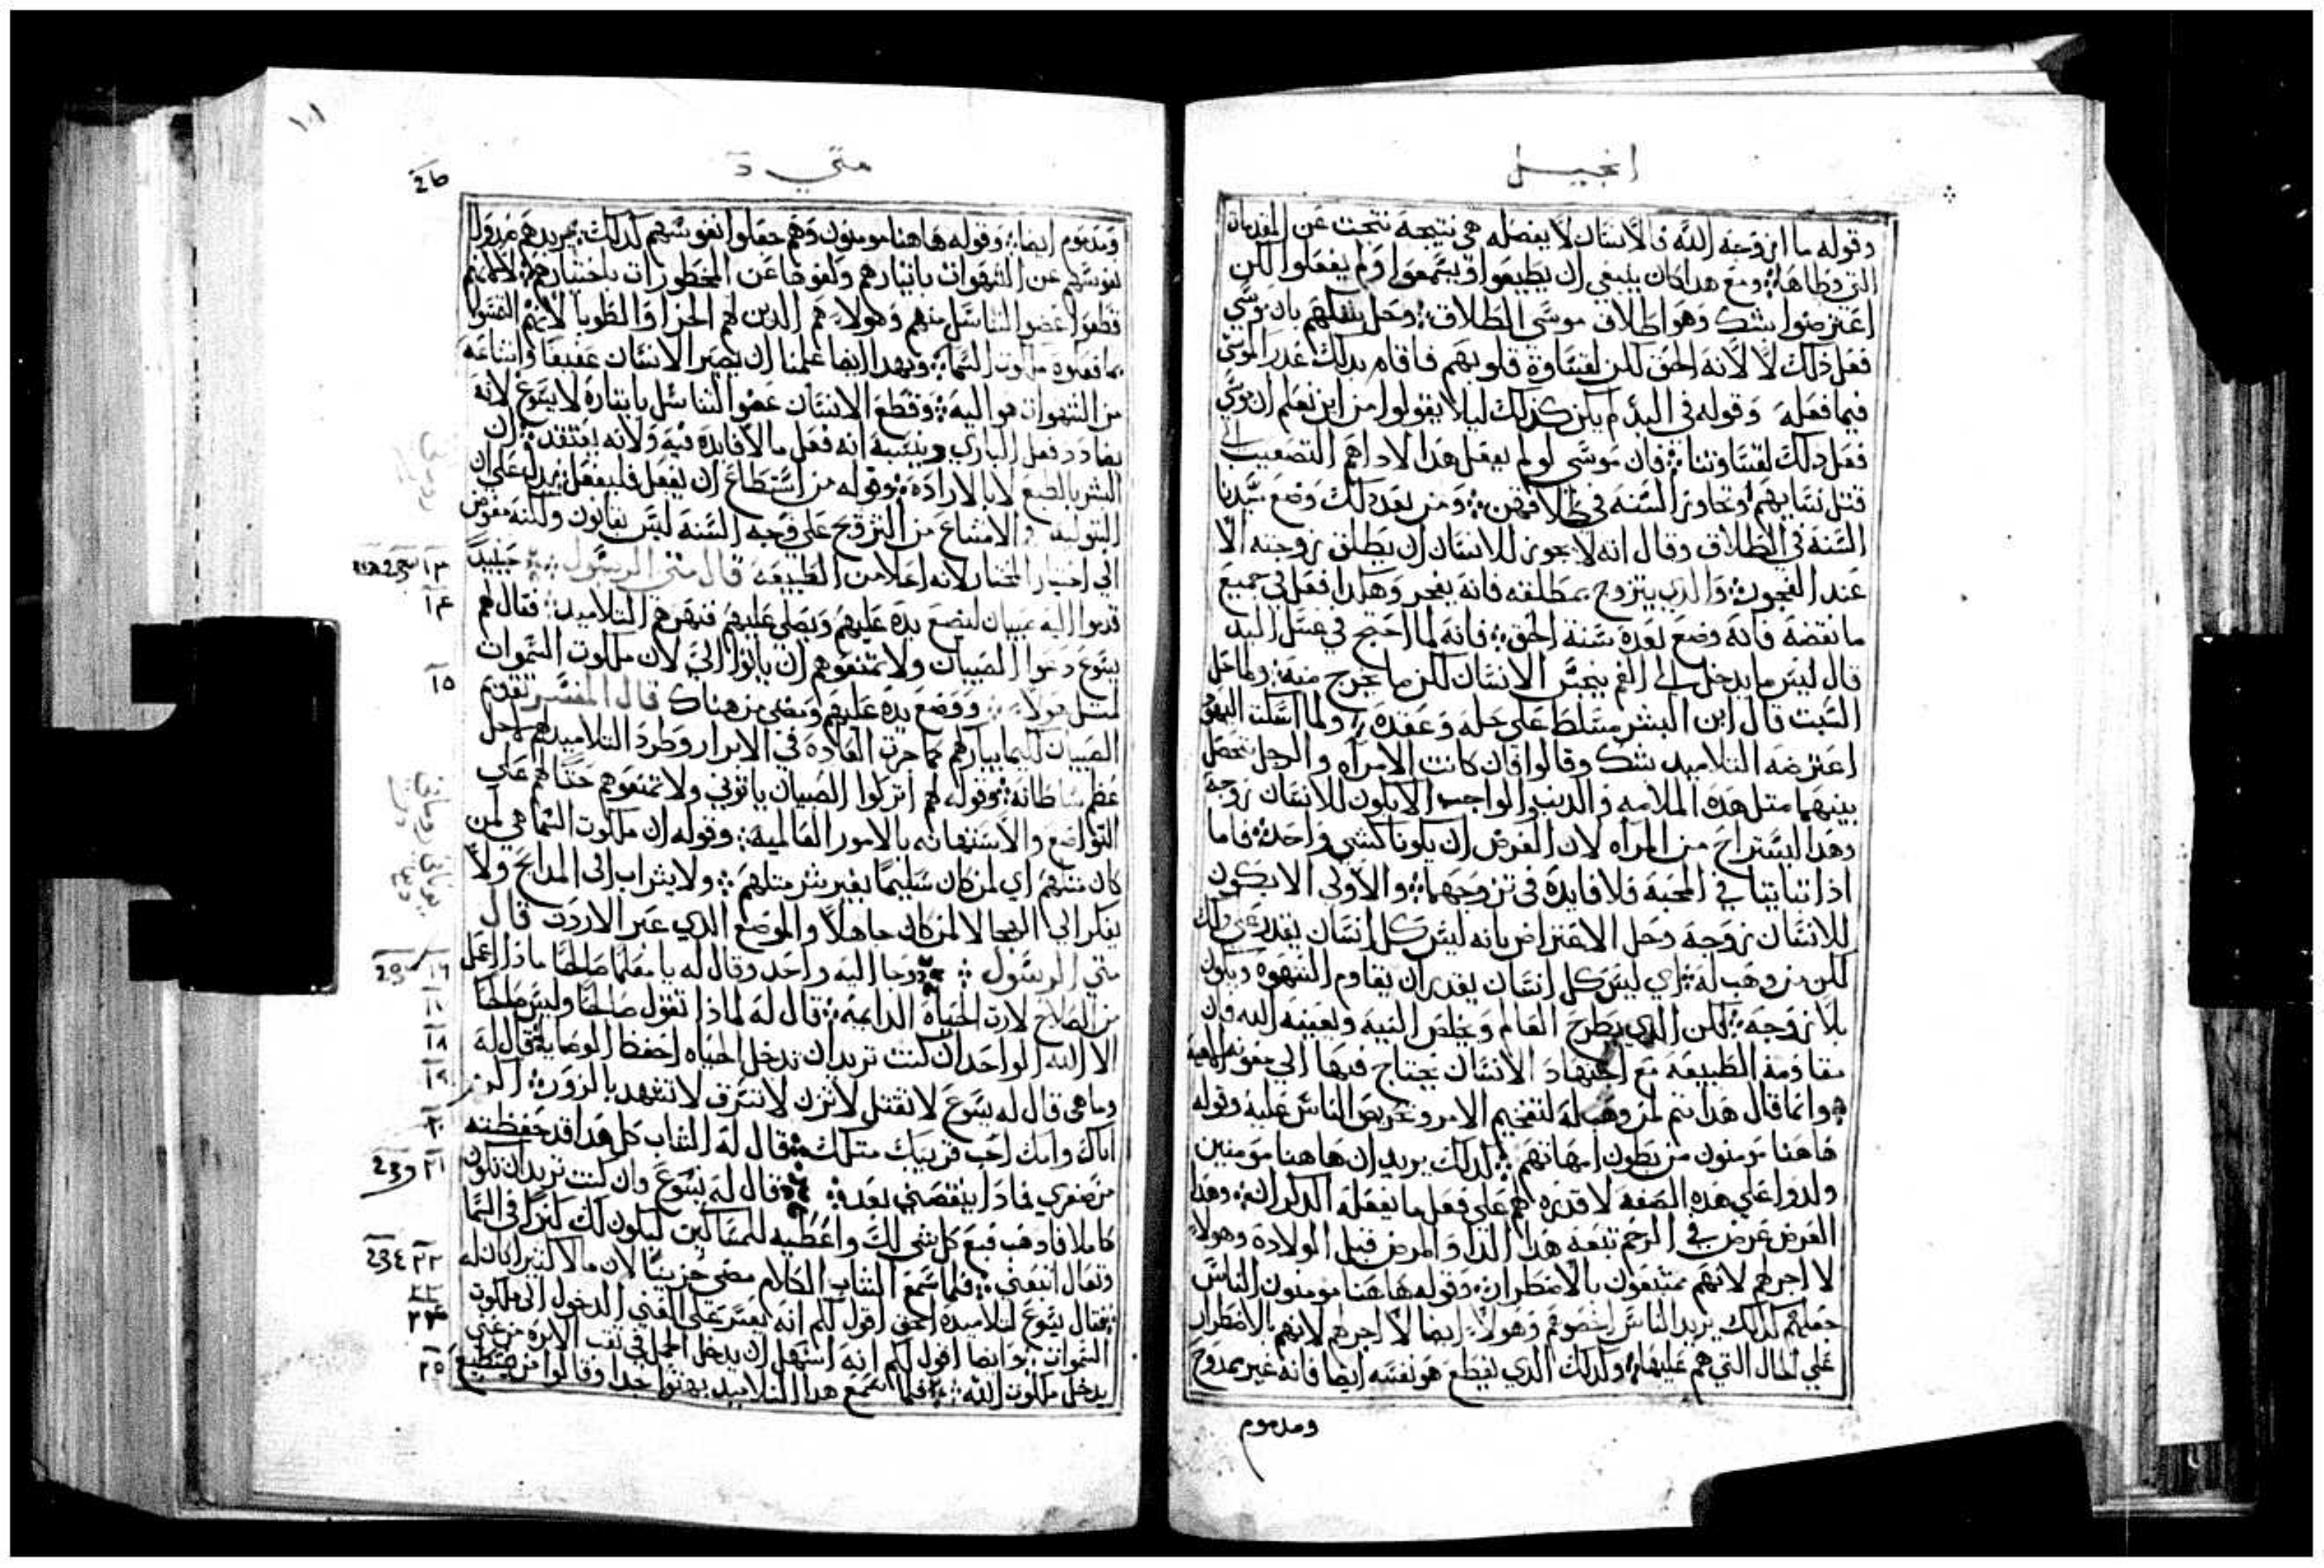 انجيل
وقوله ما ازوجه الله فالانسان لا يفصله هي نتيجه نتجت عن المقدمات
التي وطاها ومع هدا كان ينبغي ان يطيعوا ويسمعوا ولم يفعلوا لكن
اعترضوا بشك وهو اطلاق موسي الطلاق وحل شكهم بان موسي
فعل ذلك لا لانه الحق لكن لقساوة قلوبهم فاقام بدلك عدر الموسي
فيما فعله وقوله في البدء لم يكن كذلك ليلا يقولوا من اين نعلم ان موسي
فعل دلك لقساوتنا فان موسي لو لم يفعل هدا لاداهم التصعيب الي
قتل نسايهم وتجاوز السنه في طلاقهن ومن بعد دلك وضع سيدنا
السنة في الطلاق وقال انه لا يجوز للانسان ان يطلق زوجته الا
عند الفجور والدي يتزوج بمطلقه فانه يفجر وهكدا فعل في جميع
ما نقضه فانه وضع بعده سنة الحق فانه لما احتج في غسل اليد
قال ليس ما يدخل الي الفم ينجس الانسان لكن ما يخرج منه ولما حل
السبت قال ابن البشر مسلط علي حله وعقده ولما اسكت اليهود
اعترضه التلاميد بشك وقالوا ان كانت الامراه والرجل تحصل
بينهما متل هده الملامه والدنب الواجب الا يكون للانسان زوجة
وهدا ليستراح من المراه لان الغرض ان يكونا كشي واحد فاما
اذا تباينا في المحبه فلا فايدة في تزوجهما والاولي الا يكون
للانسان زوجه وحل الاعتراض بانه ليس كل انسان يقدر علي دلك
لكن من وهب له اي ليس كل انسان يقدر ان يقاوم الشهوة ويكون
بلا زوجه لكن الدي يطرح العالم ويخلص النيه ويعينه الله فان
مقاومة الطبيعه مع اجتهاد الانسان يحتاج فيها الي معونه الهيه
وانما قال هدا يتم لمن وهب له لتفخيم الامر وتحريض الناس عليه وقوله
هاهنا مومنون من بطون امهاتهم لدلك يريد ان هاهنا مومنين
ولدوا علي هده الصفه لا قدره لهم علي فعل ما يفعله الدكران وهدا
العرض عرض في الرحم تبعه هدا الدا والمرض قبل الولادة وهولاء
لا اجر لهم لانهم ممتنعون بالاضطرار وقوله هاهنا مومنون الناس
جعلهم لدلك يريد الناس اخصوهم وهولاء ايضا لا اجر لهم لانهم بالاضطرار
علي الحال التي هم عليها ولدلك الدي يقطع هو نفسه ايضا فانه غير ممدوح
ومدموم
١٠١
متي د
26
ومدموم ايضا وقوله هاهنا مومنون وهم جعلوا نفوسهم لدلك يريد هم
نفوسهم عن الشهوات بايثارهم ولفوها عن المحظورات باختيارهم لا انهم
قطعوا عضو التناسل منهم وهولاء هم الدين لهم الجزا والطوبا لانهم
بما فعلوه ملكوت السما وبهدا ايضا علمنا ان يصير الانسان عفيفا وامتناعه
من الشهوات هو اليه وقطع الانسان عضو التناسل بايثاره لا يسوغ لانه
يضادد فعل الباري وينسبه انه فعل ما لا فايدة فيه ولانه يعتقد ان
الشر بالطبع لا بالاراده وقوله من استطاع ان يفعل فليفعل يدل علي ان
البتوليه والامتناع من التزويج علي وجه السنه ليس بقانون ولكنه مفوض
الي اختيار المختار لانه اعلا من الطبيعه قال متي الرسول حينيد
١٣
قدموا اليه صبيان ليضع يده عليهم ويصلي عليهم فنهرهم التلاميد فقال لهم
١٤
يسوع دعوا الصبيان ولا تمنعوهم ان ياتوا الي لان ملكوت السموات
لمتل هولاء ووضع يده عليهم ومضي من هناك قال المفسر تقديم
١٥
الصبيان كيما يباركهم كما جرت العاده في الابرار وطرد التلاميد لهم لاجل
عظم سلطانه وقوله لهم اتركوا الصبيان ياتوني ولا تمنعوهم حتا لهم علي
التواضع والاستهانه بالامور العالميه وقوله ان ملكوت السما هي لمن
كان متلهم اي لمن كان سليما بغير شر متلهم ولا يشراب الي المدايح ولا
يفكر في الهجا لا لمن كان جاهلا والموضع الدي عبر الاردن قال
متي الرسول وجا اليه واحد وقال له يا معلما صالحا ماذا اعمل
١٦
من الصلاح لارت الحياه الدايمه قال له لماذا تقول صالحا وليس صالحا
الا الله الواحد ان كنت تريد ان تدخل الحياه احفظ الوصايا قال له
١٨
وما هي قال له يسوع لا تقتل لا تزن لا تسرق لا تشهد بالزور اكرم
١٩
اباك وامك احب قريبك متلك قال له الشاب كل هدا قد حفظته
٢٠
من صغري فمادا ينقصني بعد قال له يسوع وان كنت تريد ان تكون
٢١
كاملا فادهب فبع كل شي لك واعطيه للمساكين ليكون لك كنزا في السما
وتعال اتبعني فلما سمع الشاب الكلام مضي حزينا لان مالا كتيرا كان له
٢٢
فقال يسوع لتلاميده الحق اقول لكم انه يعسر علي الغني الدخول الي ملكوت
٢٣
السموات وايضا اقول لكم انه اسهل ان يدخل الجمل في تقب الابره من غني
٢٤
يدخل ملكوت الله فلما سمع هدا التلاميد بهتوا جدا وقالوا من يستطيع
٢٥